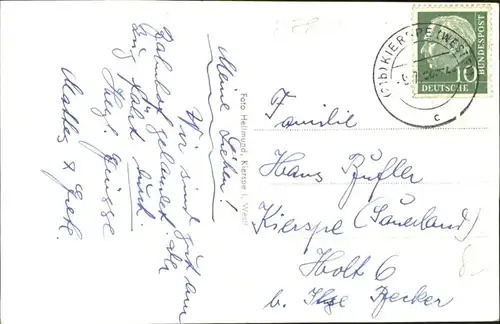 Meine Lieben!
Wir sind gut am
Bahnhof gelandet. der
Zug fährt auch.
Herzl. Grüsse
& Grete
Foto Hellmund, Kierspe i. Westf
(21b) KIERSPE (WESTF)
c
10
DEUTSCHE
BUNDESPOST
Familie
Hans
Kierspe (Sauerland)
Holt 6
b. Ilse Becker